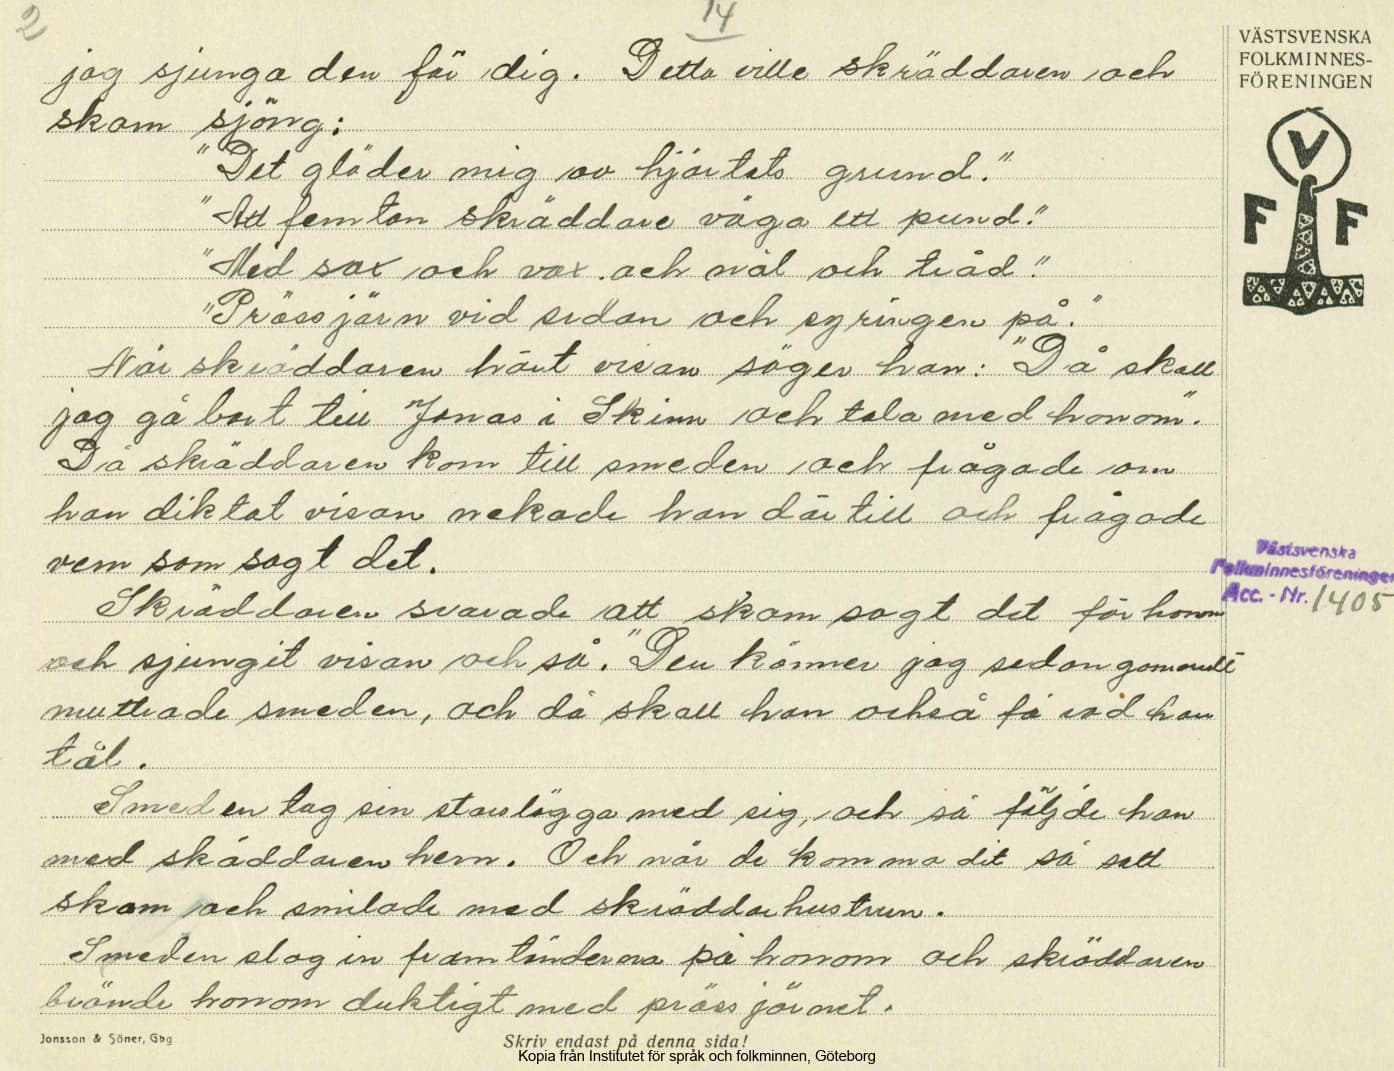 2
14
VÄSTSVENSKA
FOLKMINNES-
FÖRENINGEN
V
F F
jag sjunga den för dig. Detta ville skräddaren och
skam sjöng:
"Det gläder mig av hjärtats grund."
"Att femton skräddare väga ett pund."
"Med sax och vax och nål och tråd."
"Prässjärn vid sidan och syringen på."
När skräddaren hört visan säger han: "Då skall
jag gå bort till "Jonas i Skinn och tala med honom".
Då skräddaren kom till smeden och frågade om
han diktat visan nekade han där till och frågade
vem som sagt det.
Skräddaren svarade att skam sagt det för honom
och sjungit visan och så. "Den känner jag sedan gammalt
muttrade smeden, och då skall han också få vad han
tål.
Smeden tag sin storslägga med sig, och så följde han
med skäddaren hem. Och när de komma dit så satt
skam och smilade med skräddarhustrun.
Smeden slog in framtänderna på honom och skräddaren
brände honom duktigt med prässjärnet.
Västsvenska
Folkminnesföreningen
Acc. - Nr. 1405
Jonsson & Söner, Gbg
Skriv endast på denna sida!
Kopia från Institutet för språk och folkminnen, Göteborg